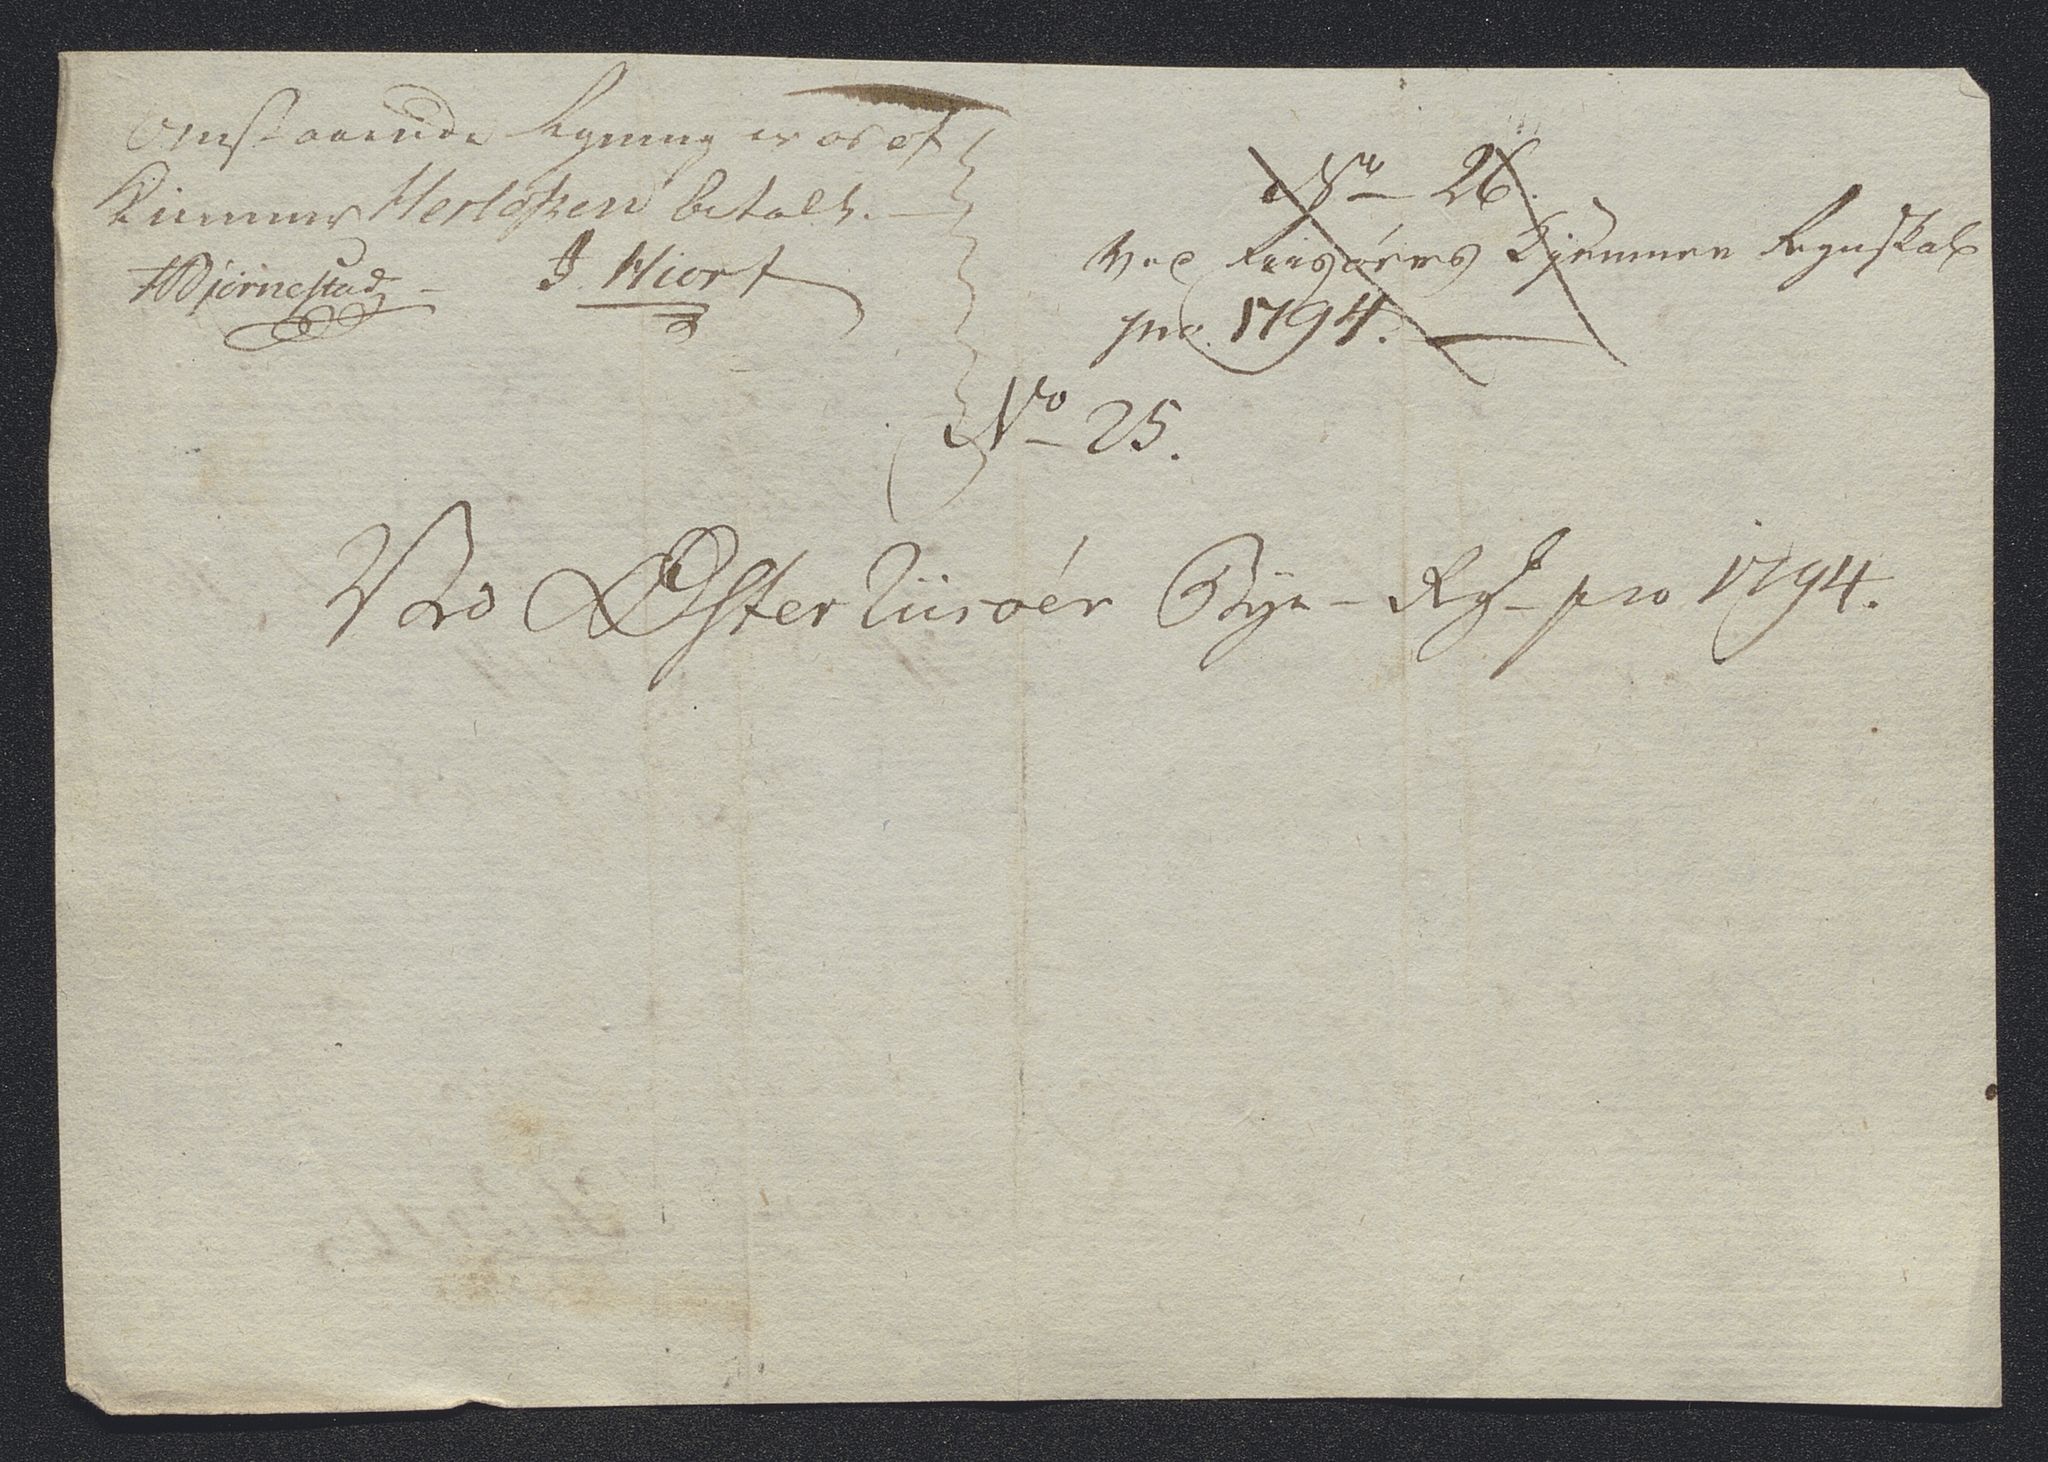 Omstaaende Regning er os af
Kiemner Herlofsen betalt. —
HBjörnestad — J. Hiort
No 26.
Ved Riisöers Kjemner Regnskab
pro. 1794. —
No 25.
Ved Øster Riisöer Bye - Rgs - pro 1794.